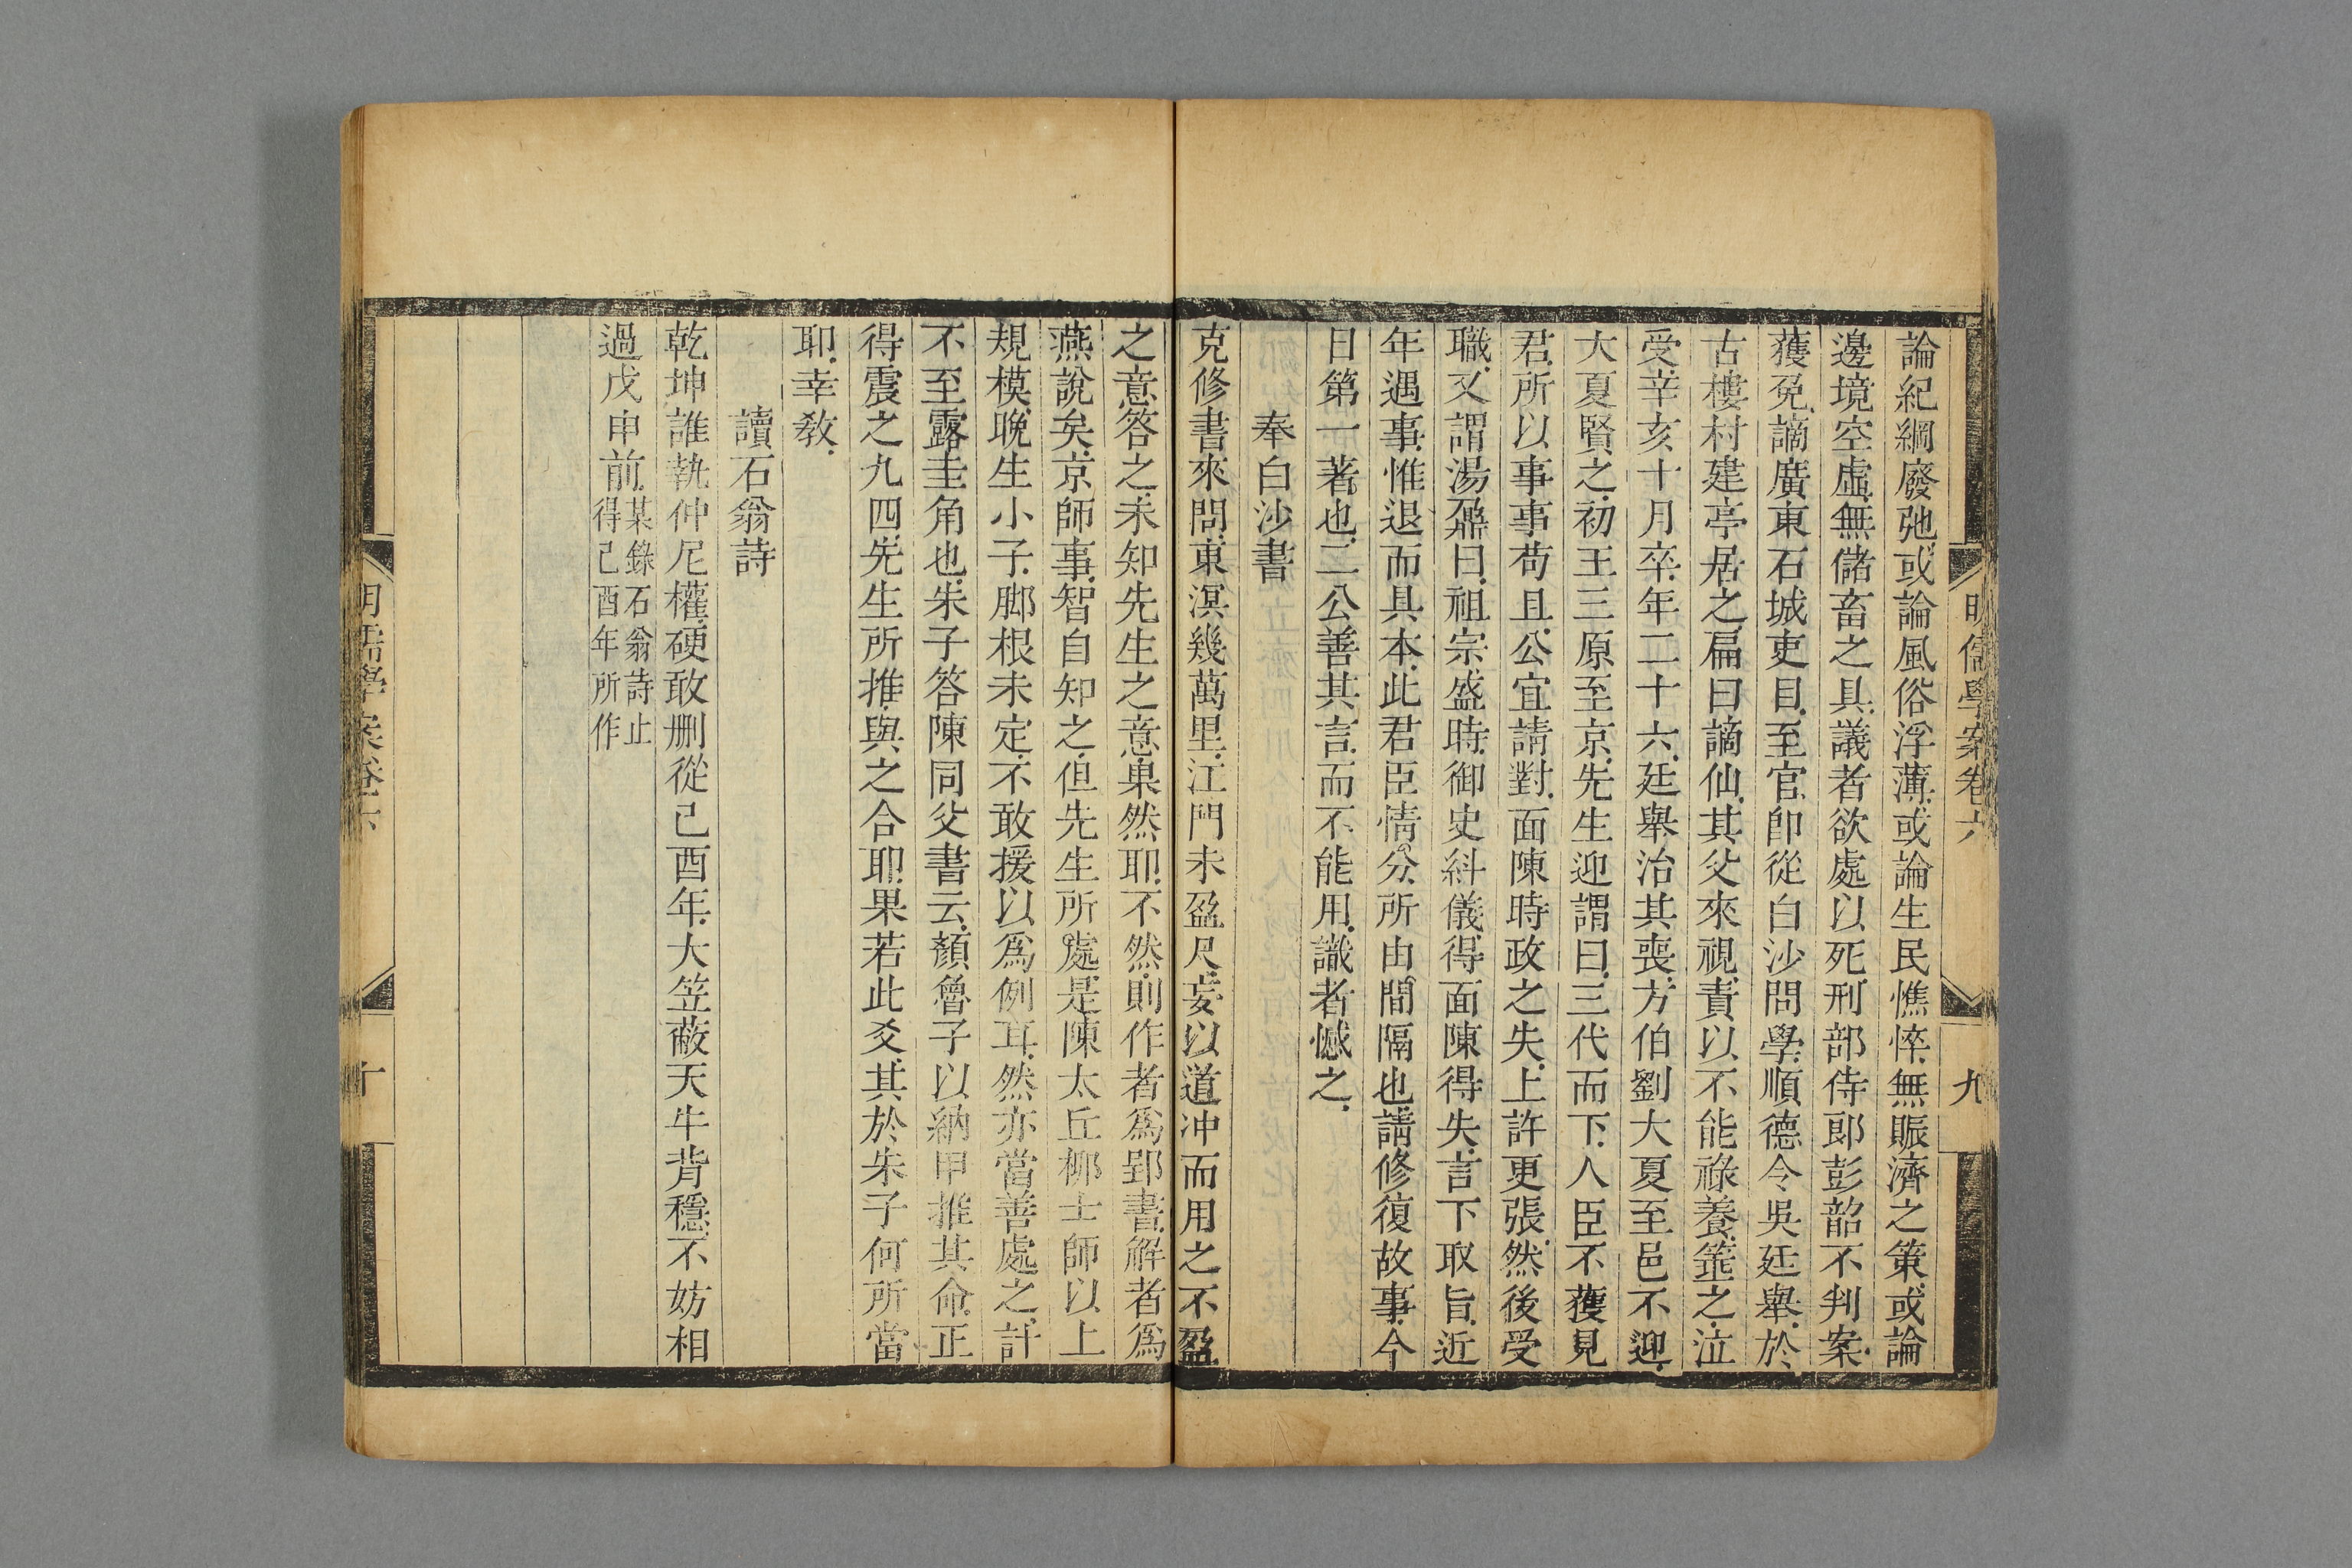 明儒學案卷六
九
論紀綱廢弛或論風俗浮薄或論生民憔悴無賑濟之策或論
邊境空虛無儲畜之具議者欲處以死刑部侍郎彭韶不判案
獲免謫廣東石城吏目至官卽從白沙問學順德令吳廷舉於
古樓村建亭居之扁曰謫仙其父來視責以不能祿養箠之泣
受辛亥十月卒年二十六廷舉治其喪方伯劉大夏至邑不迎
大夏賢之初王三原至京先生迎謂曰三代而下人臣不獲見
君所以事事苟且公宜請對面陳時政之失上許更張然後受
職又謂湯鼐曰祖宗盛時御史糾儀得面陳得失言下取旨近
年遇事惟退而具本此君臣情分所由間隔也請修復故事今
日第一著也二公善其言而不能用識者憾之
奉白沙書
克修書來問東溟幾萬里江門未盈尺妄以道冲而用之不盈
之意答之未知先生之意果然耶不然則作者爲郢書解者爲
燕說矣京師事智自知之但先生所處是陳太丘柳士師以上
規模晚生小子脚根未定不敢援以爲例耳然亦當善處之計
不至露圭角也朱子答陳同父書云顏魯子以納甲推其命正
得震之九四先生所推與之合耶果若此爻其於朱子何所當
耶幸敎
讀石翁詩
乾坤誰執仲尼權硬敢刪從己酉年大笠蔽天牛背穩不妨相
過戊申前某錄石翁詩止
得己酉年所作
明儒學案卷六
十